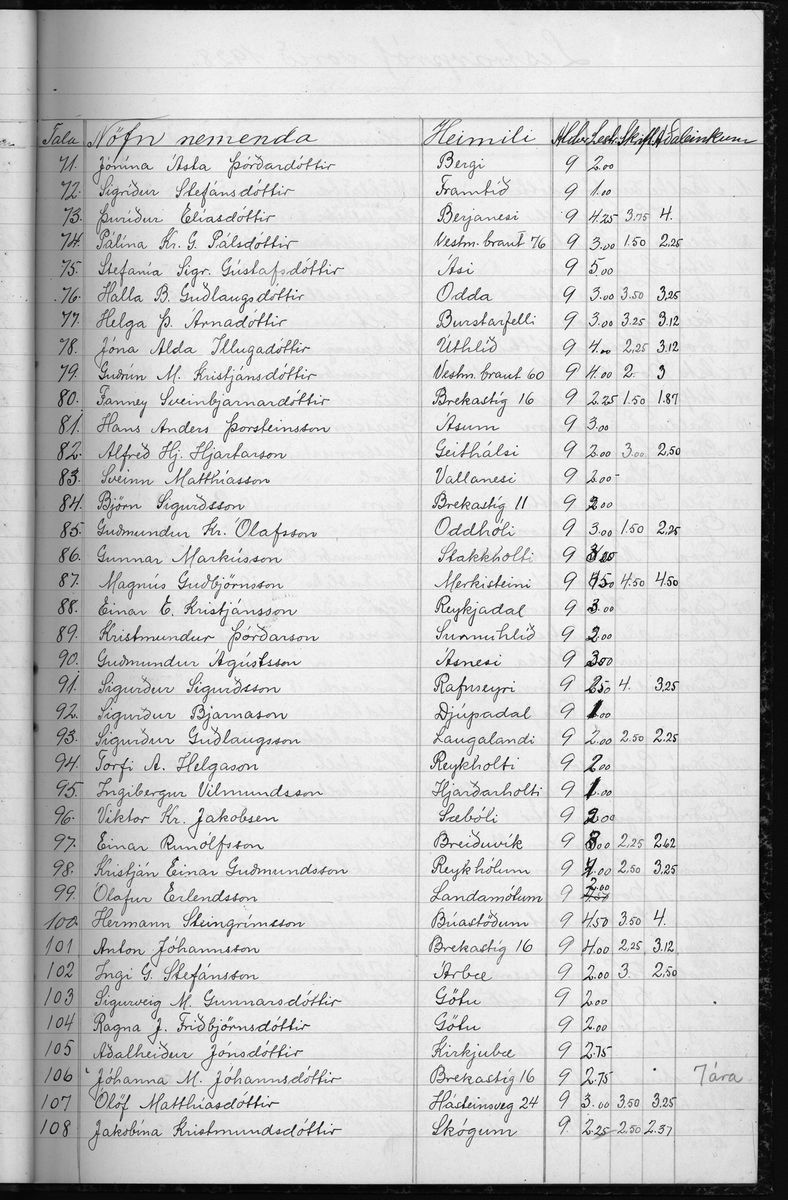 Tala Nöfn nemenda Heimili Aldur Lestr. Skrift Aðaleinkunn
71. Jónína Ásta Þórðardóttir Bergi 9 2.00
72. Sigríður Stefánsdóttir Framtíð 9 1.00
73. Þuríður Elíasdóttir Berjanesi 9 4.25 3.75 4.
74. Pálína Kr. G. Pálsdóttir Vestm. braut 76 9 3.00 1.50 2.25
75. Stefanía Sigr. Gústafsdóttir Ási 9 5.00
76. Halla B. Guðlaugsdóttir Odda 9 3.00 3.50 3,25
77. Helga Þ. Árnadóttir Burstarfelli 9 3.00 3.25 3.12
78. Jóna Alda Illugadóttir Úthlíð 9 4.00 2,25 3.12
79. Guðrún M. Kristjánsdóttir Vestm. braut 60 9 4.00 2. 3
80. Fanney Sveinbjarnardóttir Brekastíg 16 9 2.25 1.50 1.87
81. Hans Anders Þorsteinsson Ásum 9 3.00
82. Alfreð Hj. Hjartarson Geithálsi 9 2.00 3.00 2,50
83. Sveinn Matthíasson Vallanesi 9 2.00
84. Björn Sigurðsson Brekastíg 11 9 2.00
85. Guðmundur Kr. Ólafsson Oddhóli 9 3.00 1.50 2.25
86. Gunnar Markússon Stakkholti 9
87. Magnús Guðbjörnsson Merkisteini 9 4.50 4.50 4.50
88. Einar E. Kristjánsson Reykjadal 9 3.00
89. Kristmundur Þórðarson Sunnuhlíð 9 2.00
90. Guðmundur Ágústsson Ásnesi 9 3.00
91. Sigurður Sigurðsson Rafnseyri 9 2.50 4. 3,25
92. Sigurður Bjarnason Djúpadal 9 1.00
93. Sigurður Guðlaugsson Laugalandi 9 2.00 2.50 2.25
94. Torfi A. Helgason Reykholti 9 2.00
95. Ingibergur Vilmundsson Hjarðarholti 9 1.00
96. Viktor Kr. Jakobsen Sæbóli 9 2.00
97. Einar Runólfsson Breiðuvík 9 3.00 2,25 2.62
98. Kristján Einar Guðmundsson Reykhólum 9 4.00 2,50 3,25
99. Ólafur Erlendsson Landamótum 9 2.00
100. Hermann Steingrímsson Búastöðum 9 4.50 3.50 4.
101 Anton Jóhannsson Brekastíg 16 9 4.00 2,25 3.12
102 Ingi G. Stefánsson Árbæ 9 2.00 3. 2,50
103 Sigurveig M. Gunnarsdóttir Götu 9 2.00
104 Ragna J. Friðbjörnsdóttir Götu 9 2.00
105 Aðalheiður Jónsdóttir Kirkjubæ 9 2.75
106 Jóhanna M. Jóhannsdóttir Brekastíg 16 9 2.75 7 ára
107 Ólöf Matthíasdóttir Hásteinsveg 24 9 3.00 3,50 3.25
108 Jakobína Kristmundsdóttir Skógum 9. 2.25 2.50 2.37